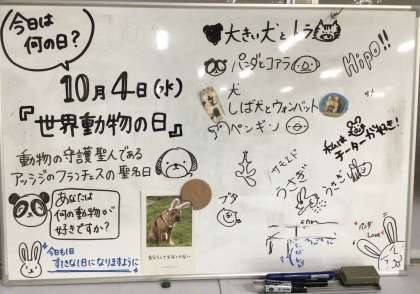 今日は
何の日？
10月4日(水)
『世界動物の日』
動物の守護聖人である
アッシジのフランチェスの聖名日
あなたは
何の動物が
好きですか？
今日も1日
すてきな1日になりますように
大きい犬とトラ
パンダとコアラ
Hipo!!
犬
しば犬とウォンバット
ペンギン
私は
チーターが好き!
サモエド
うさぎ
うさぎ
ブタ
パンダ
Love